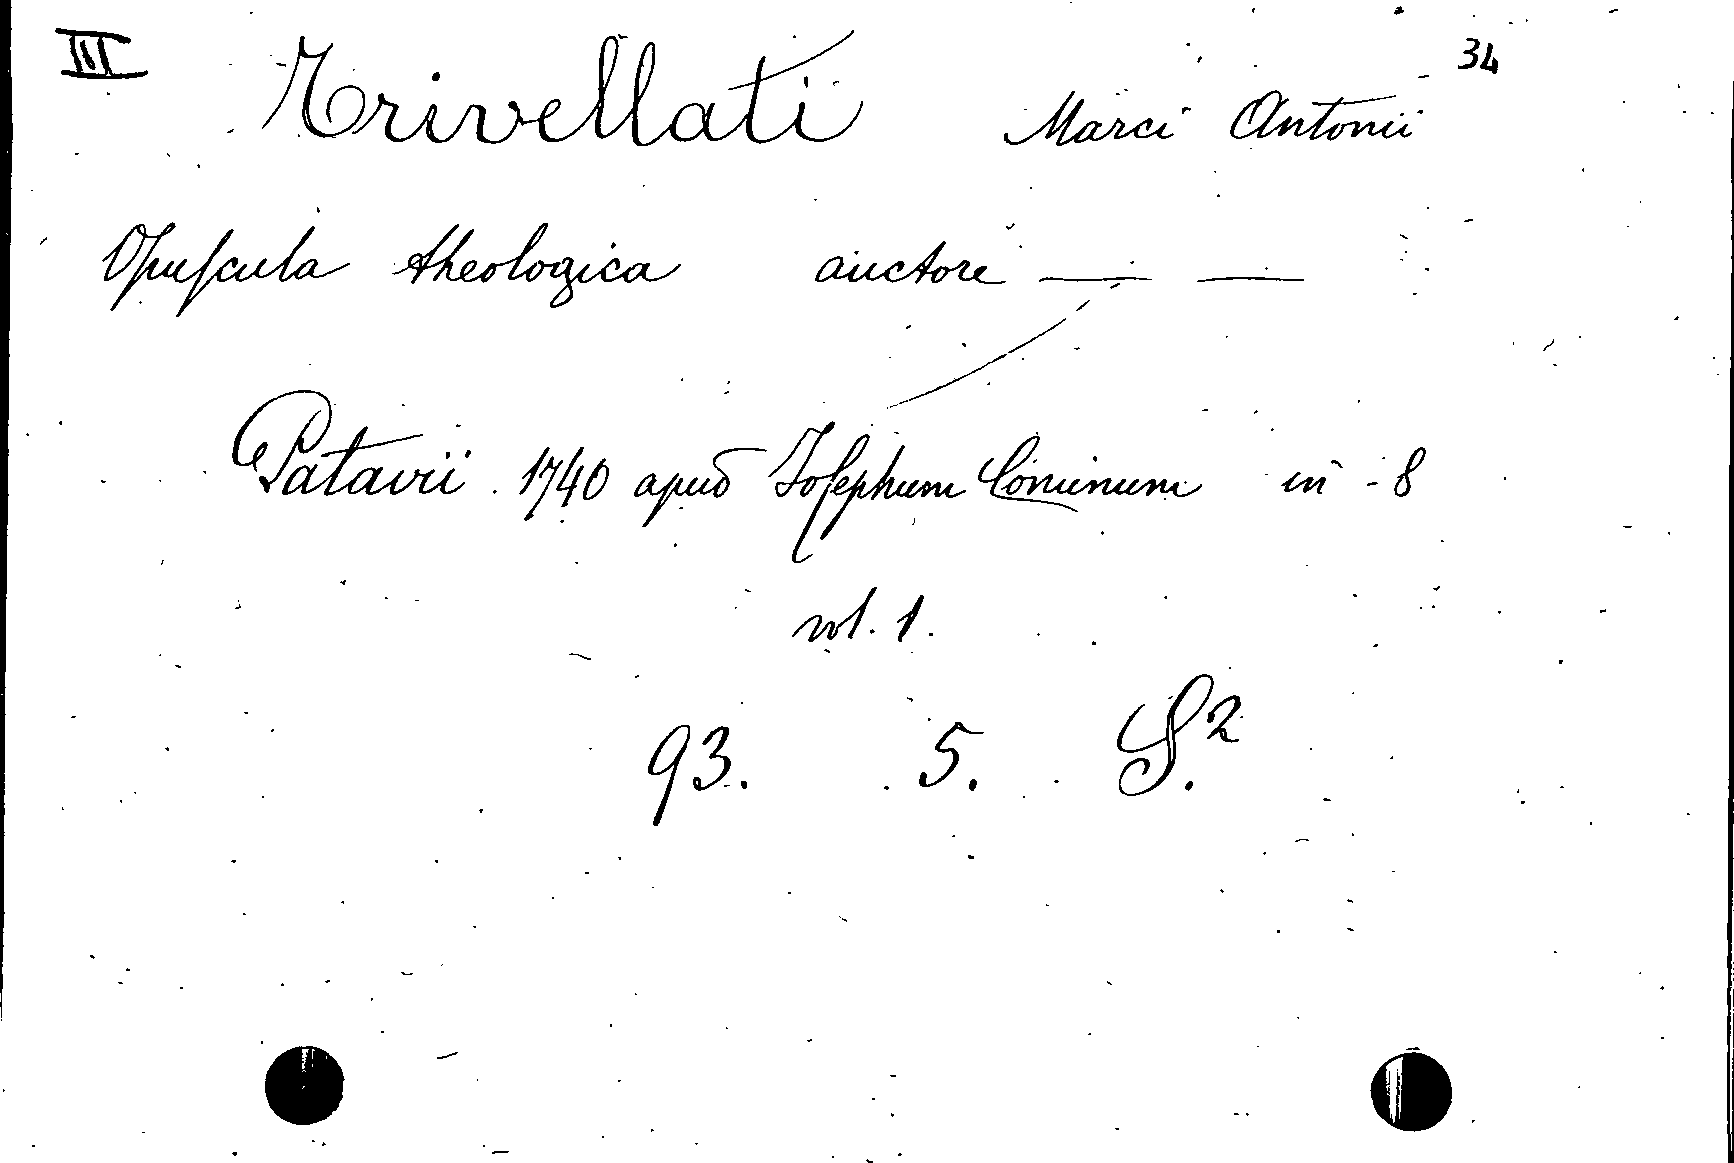 III 34
Trivellati Marci Antonii
Opuscula theologica auctore — —
Patavii 1740 apud Josephum Cominum in - 8
vol. 1.
93. 5. S.²